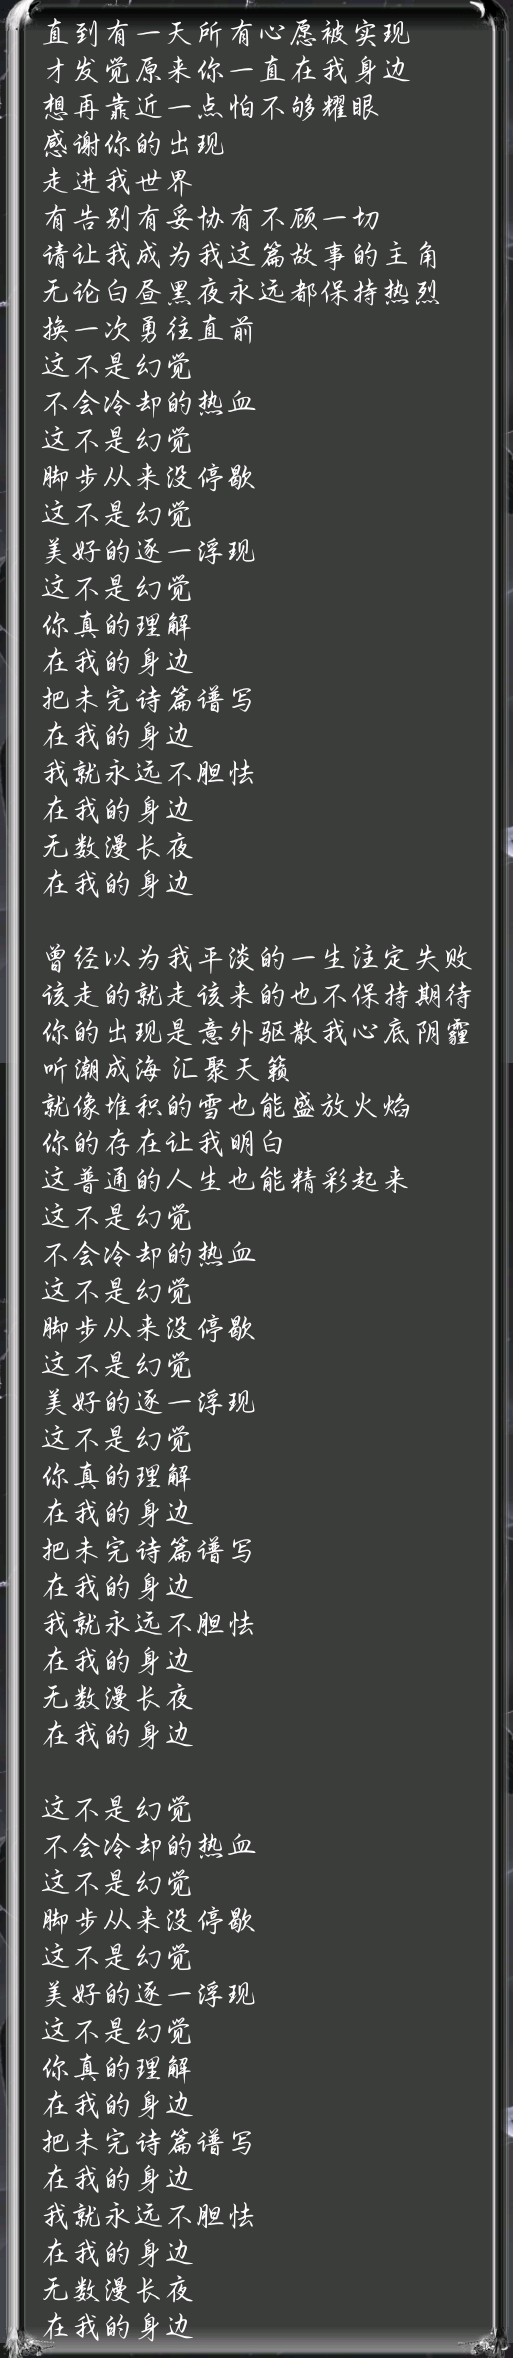 直到有一天所有心愿被实现
才发觉原来你一直在我身边
想再靠近一点怕不够耀眼
感谢你的出现
走进我世界
有告别有妥协有不顾一切
请让我成为我这篇故事的主角
无论白昼黑夜永远都保持热烈
换一次勇往直前
这不是幻觉
不会冷却的热血
这不是幻觉
脚步从来没停歇
这不是幻觉
美好的逐一浮现
这不是幻觉
你真的理解
在我的身边
把未完诗篇谱写
在我的身边
我就永远不胆怯
在我的身边
无数漫长夜
在我的身边

曾经以为我平淡的一生注定失败
该走的就走该来的也不保持期待
你的出现是意外驱散我心底阴霾
听潮成海 汇聚天籁
就像堆积的雪也能盛放火焰
你的存在让我明白
这普通的人生也能精彩起来
这不是幻觉
不会冷却的热血
这不是幻觉
脚步从来没停歇
这不是幻觉
美好的逐一浮现
这不是幻觉
你真的理解
在我的身边
把未完诗篇谱写
在我的身边
我就永远不胆怯
在我的身边
无数漫长夜
在我的身边

这不是幻觉
不会冷却的热血
这不是幻觉
脚步从来没停歇
这不是幻觉
美好的逐一浮现
这不是幻觉
你真的理解
在我的身边
把未完诗篇谱写
在我的身边
我就永远不胆怯
在我的身边
无数漫长夜
在我的身边